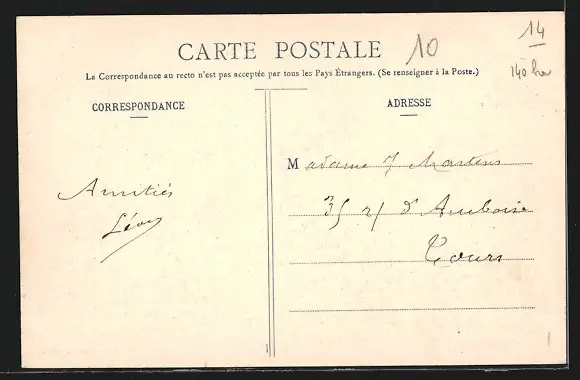 CARTE POSTALE
10
14
La Correspondance au recto n'est pas acceptée par tous les Pays Étrangers. (Se renseigner à la Poste.)
CORRESPONDANCE
ADRESSE
Madame J Martens
Amitiés
35 r d'Amboise
Tours